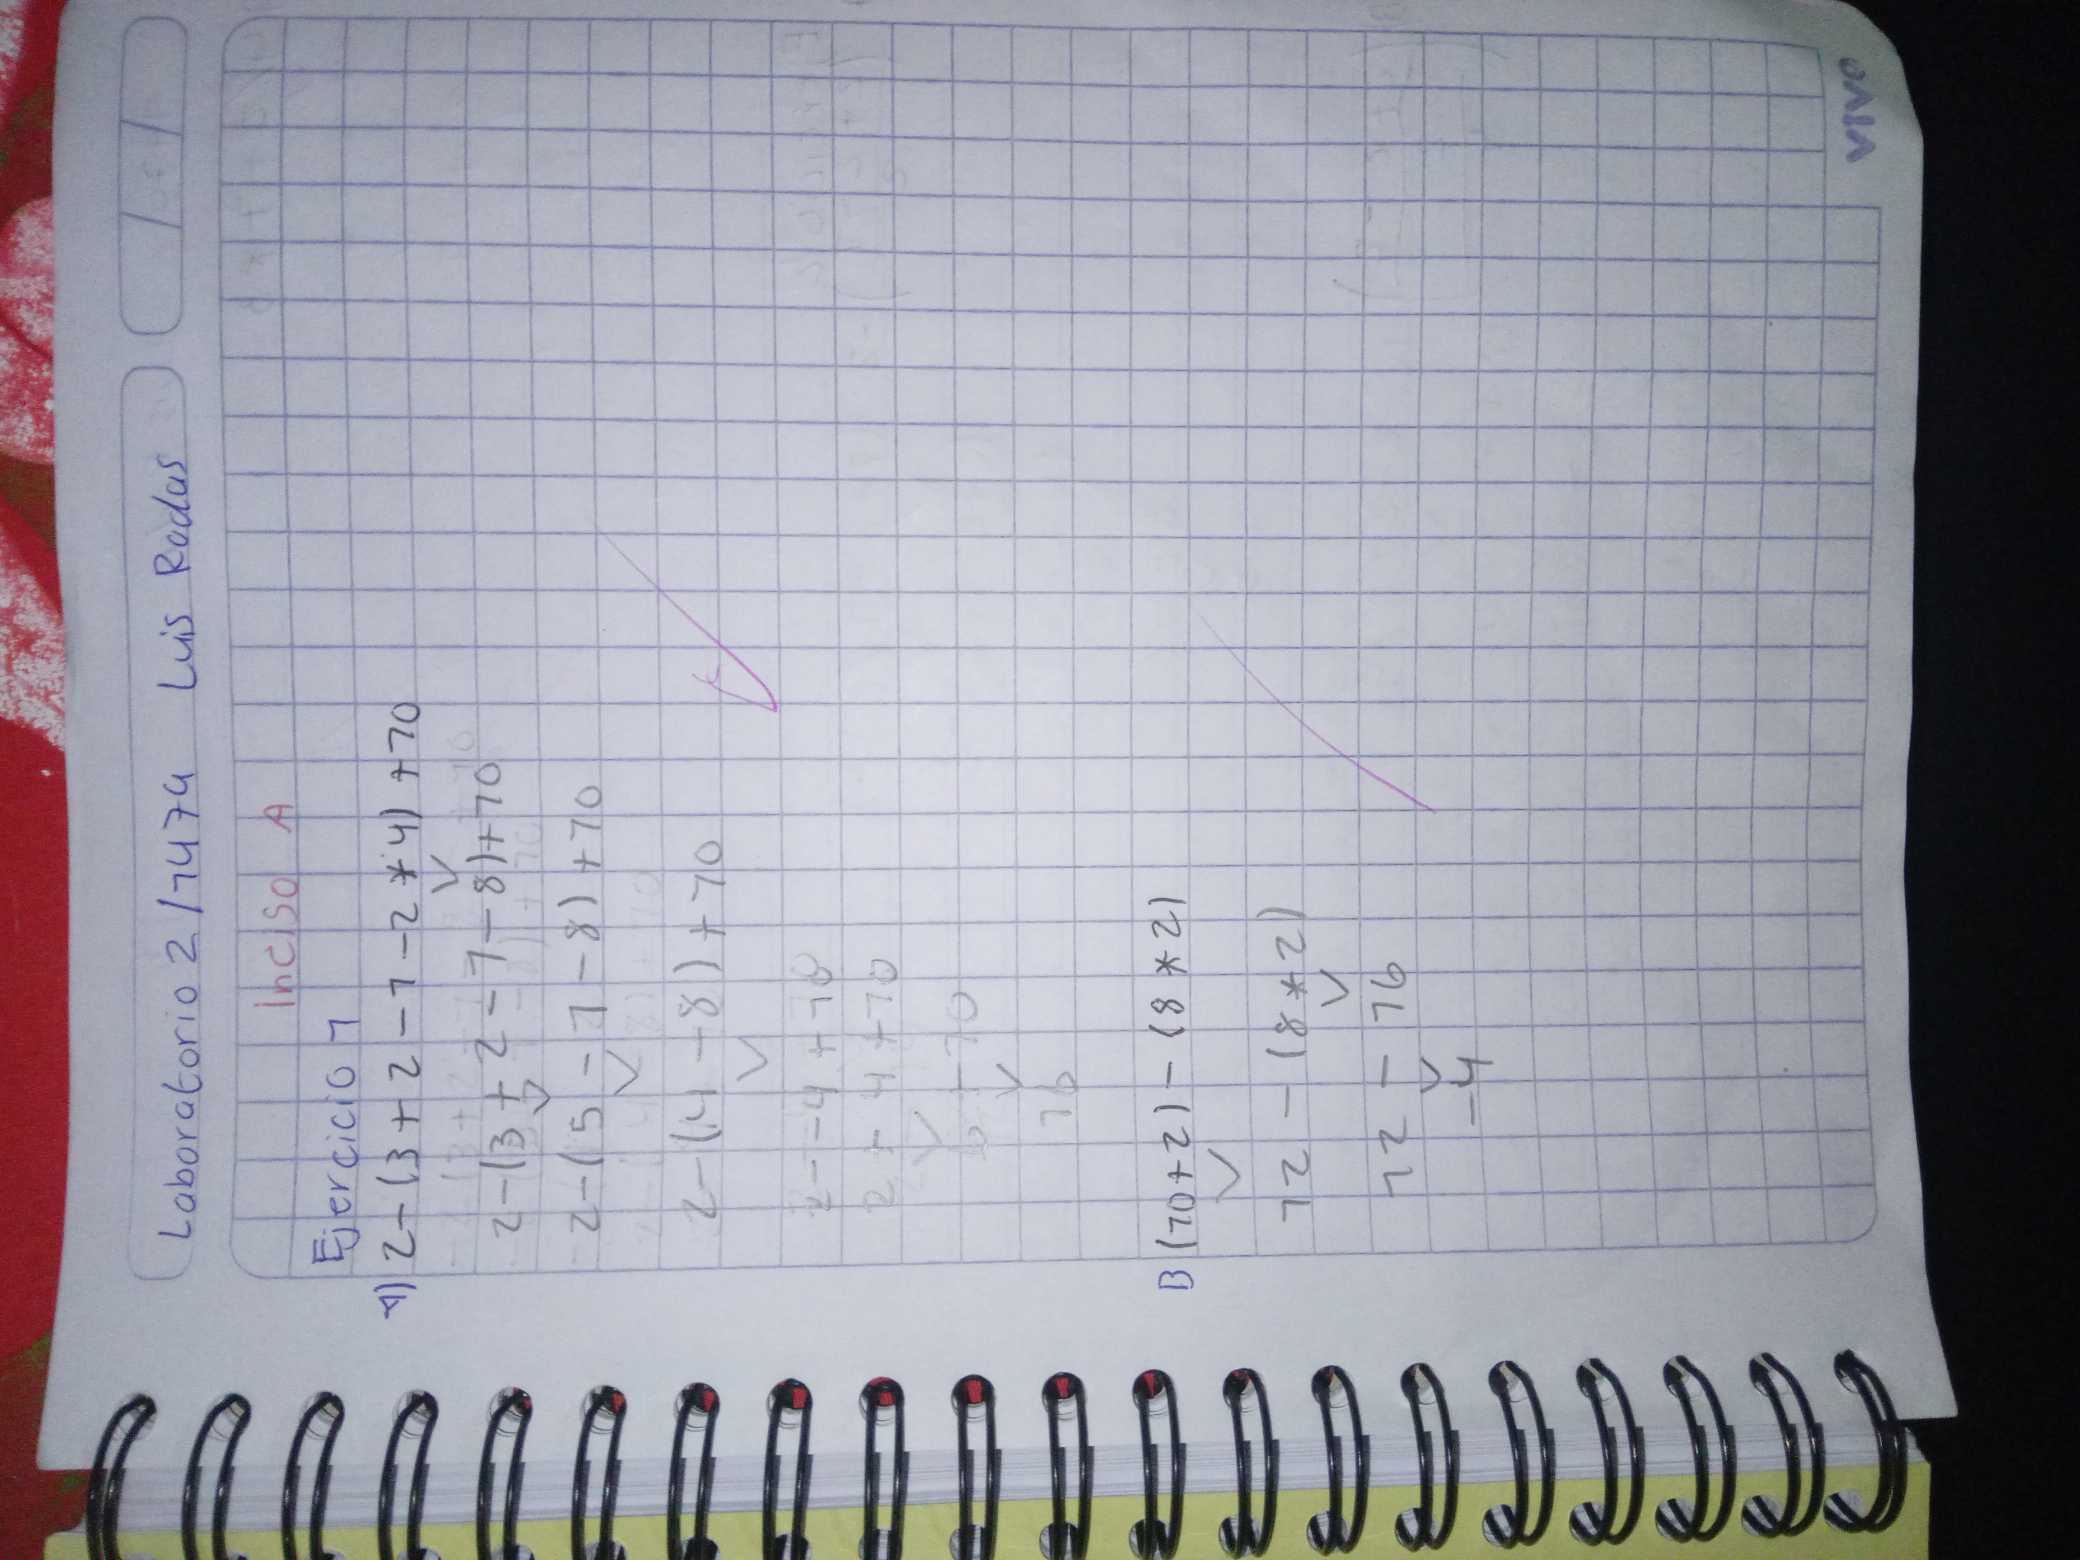 Laboratorio 2 /1414 Luis Rodas
Inciso A
Ejercicio 1
A) 2-(3+2-1-2*4)+10
2-(3+2-1-8)+10
2-(5-1-8)+10
2-(4-8)+10
2--4+10
2+4+10
6+10
16
B (10+2)-(8*2)
12-(8*2)
12-16
-4